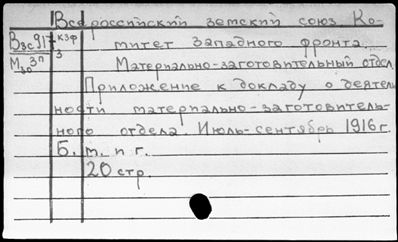 Всероссийский земский союз. Ко-
Взс91 кзф митет Западного фронта.
3
М 3п Материально-заготовительный отдел
во
Приложение к докладу о деятель-
ности материально-заготовитель-
ного отдела. Июль-сентябрь 1916 г.
Б. м. и г.
20 стр.